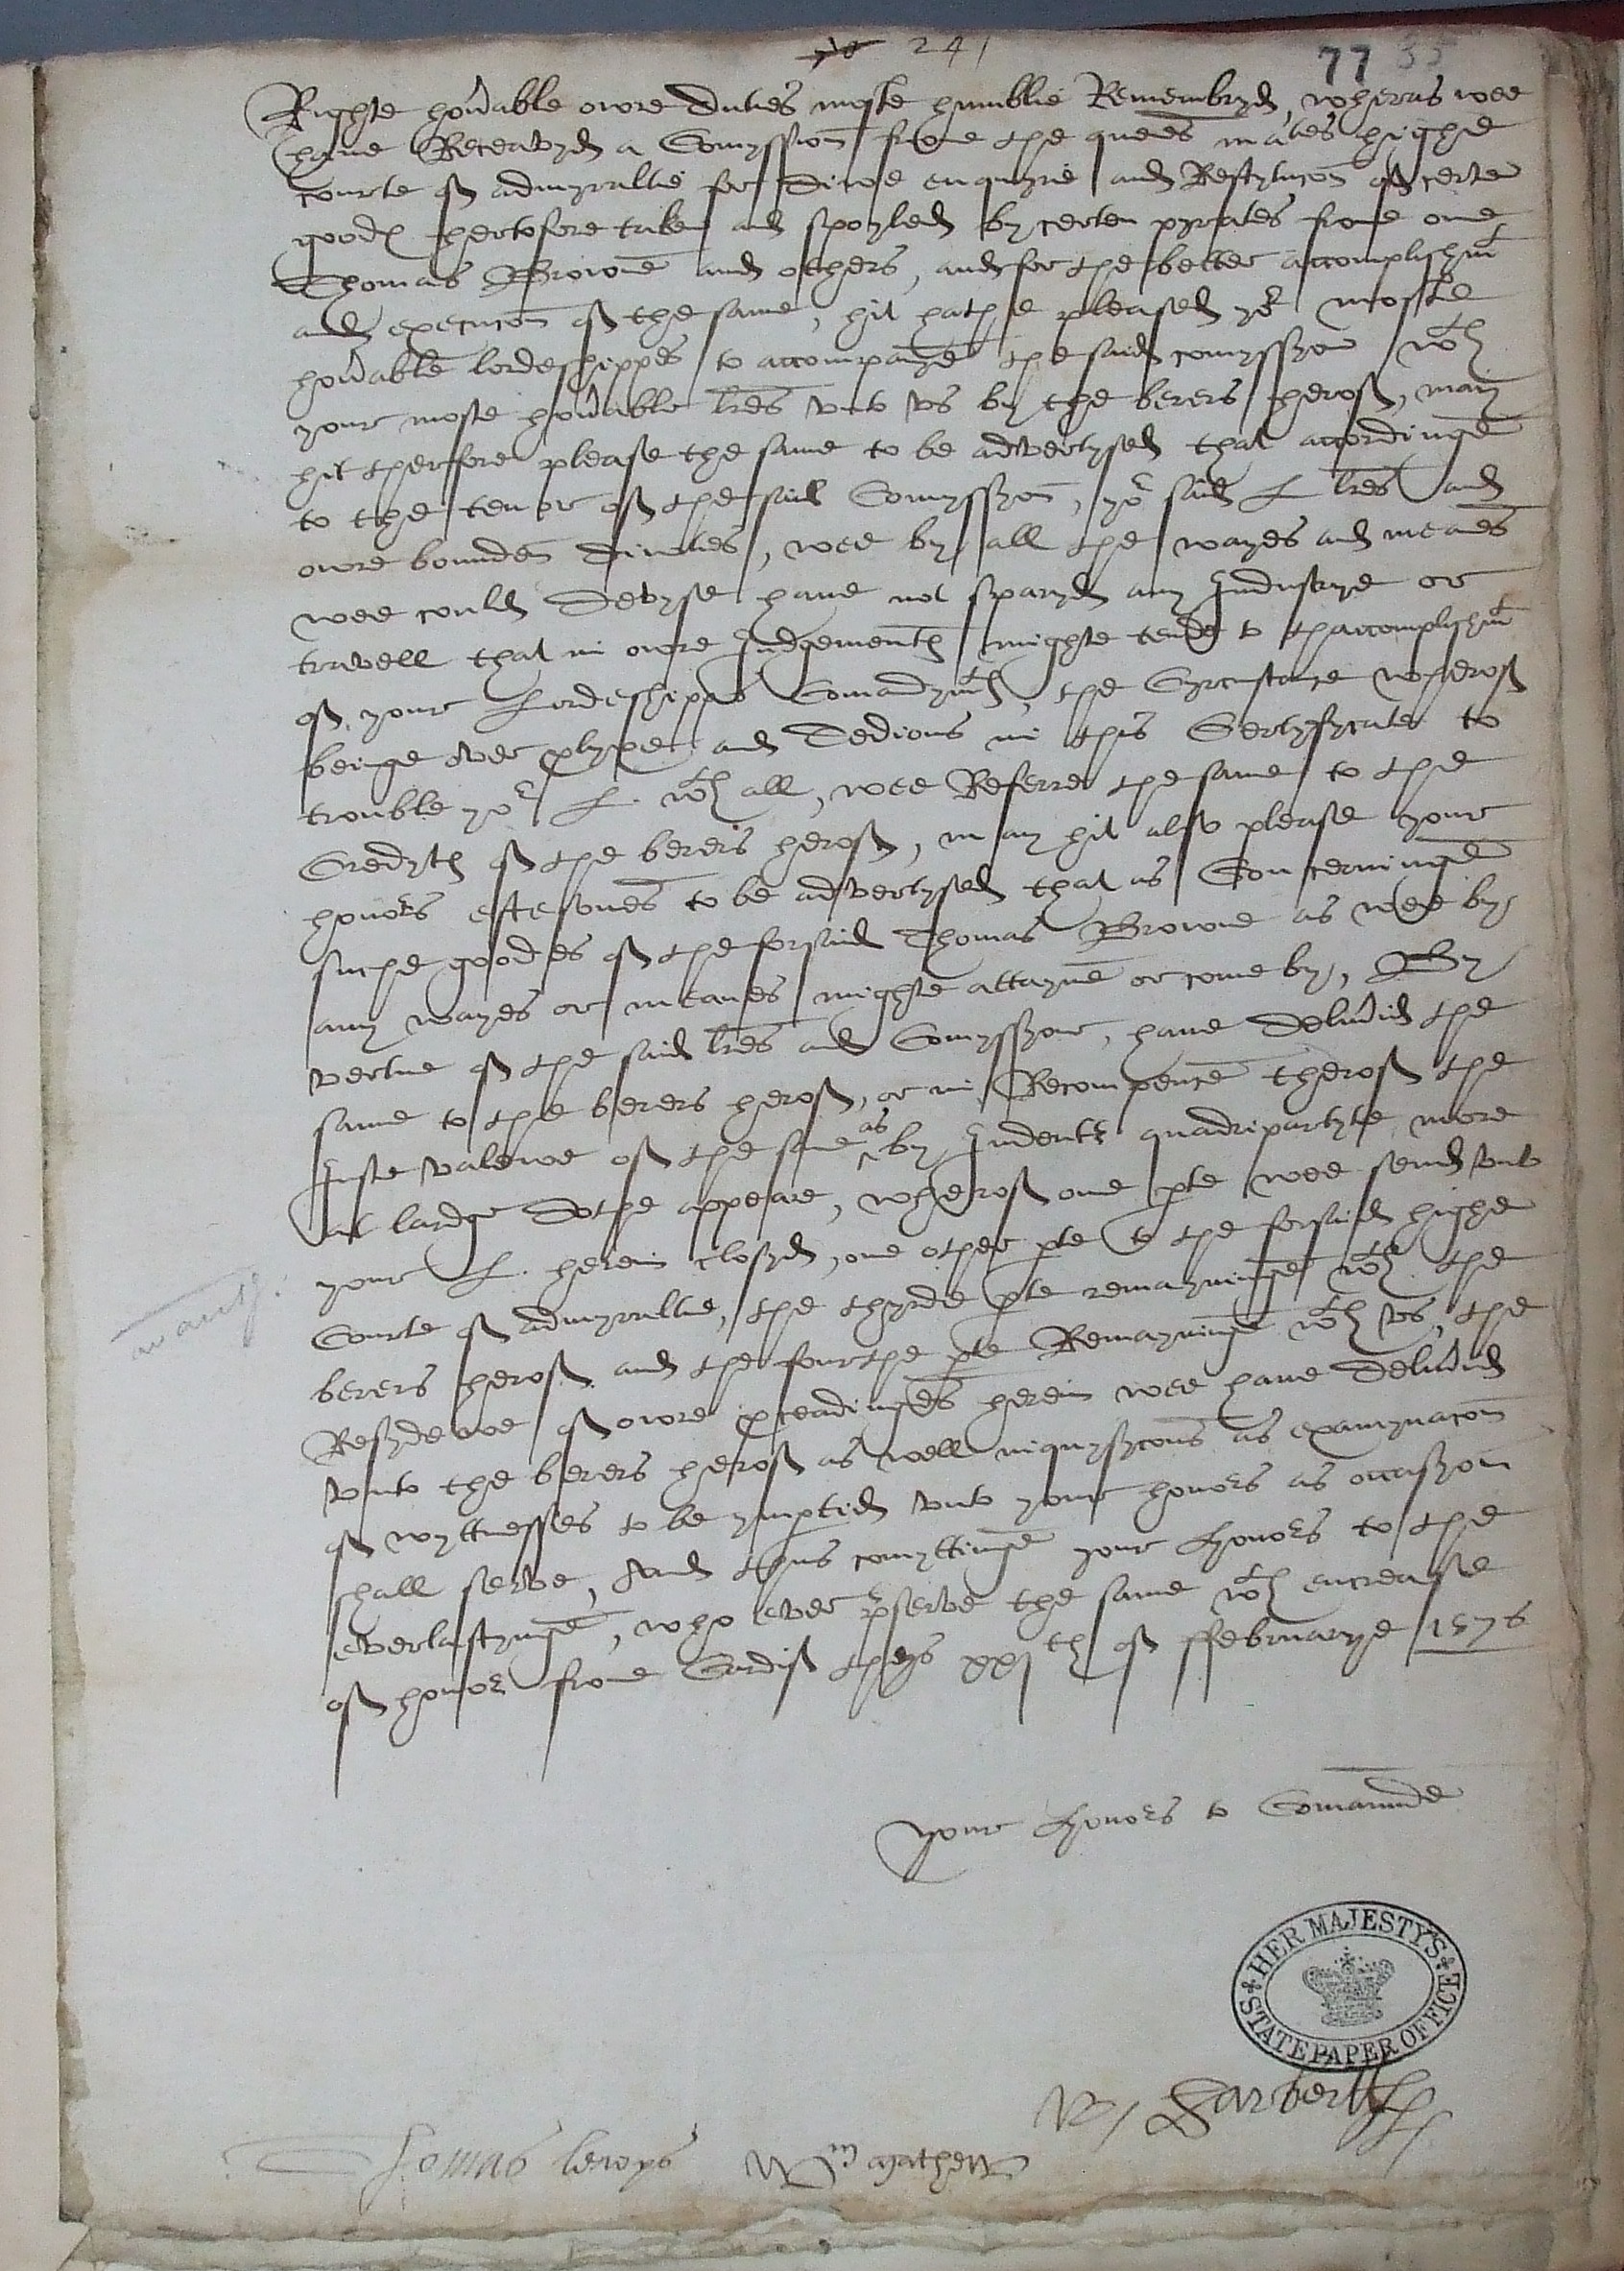 24
77 35
Righte hon'able owre duties moste humblie Remembryd, wheras wee
have Receavyd a Comyssion frome the quenes ma'ties highe
courte of admyraltie for diwe enquyrie and Restytucon of certen
goods hertofore taken and spoyled by certen pyrates frome one
Thomas Browne and others, and for the better accomplishm't
and execucon of the same, hit hathe pleased yo'r moste
hon'able lordeshippes to accompayne the said comyssyon w'th
your moste hon'able l'res unto us by the berers herof, may
hit therfore please the same to be advertysed that accordinge
to the tenor of the said Comyssyon, yo'r said L l'res and
owre bounden diwties, wee by all the wayes and meanes
wee could devyse have not sparyd any Industrye or
travell that in owre Judgements mighte tende to thaccomplishm't
of your Lordeshipps Comandym'ts, the Cyrcustance wherof
beinge over plyxe and Tedious in this Certyfycate to
trouble yo'r L. w'th all, wee Referre the same to the
Credyth of the berers herof, may hit also please your
honors eftesones to be advertysed that as Concerninge
suche goodes of the forsaid Thomas Browne as wee by
any wayes or meanes mighte attayne or come by, By
vertue of the said l'res and Comyssyon, have deliv'id the
same to the berers herof, or in Recompence therof the
Juste valewe of the same as by Indents quadripartyte more
at lardge dothe appeare, wherof one p'te wee send unto
your L. herein closyd, one other p'te to the forsaid highe
Courte of admyraltie, the thyrde p'te remayninge w'th the
berers herof and the fourthe p'te Remayninge w'th us, the
Resydewe of owre p'ceadinges herein wee have deliv'id
unto the berers herof as well inquysycons as examynacon
of wyttnesses to be ymp'tid unto your honors as occasyon
shall serve, And thus comyttinge your honors to the
everlastynge, who ever p'serve the same w'th encrease
of honor frome Cardif theys xxj th of ffebruarye 1576
wanth.
your honors to Comaunde
HER MAJESTY'S STATE PAPER OFFICE
W, Harbert
Thomas lewys Wm mathew